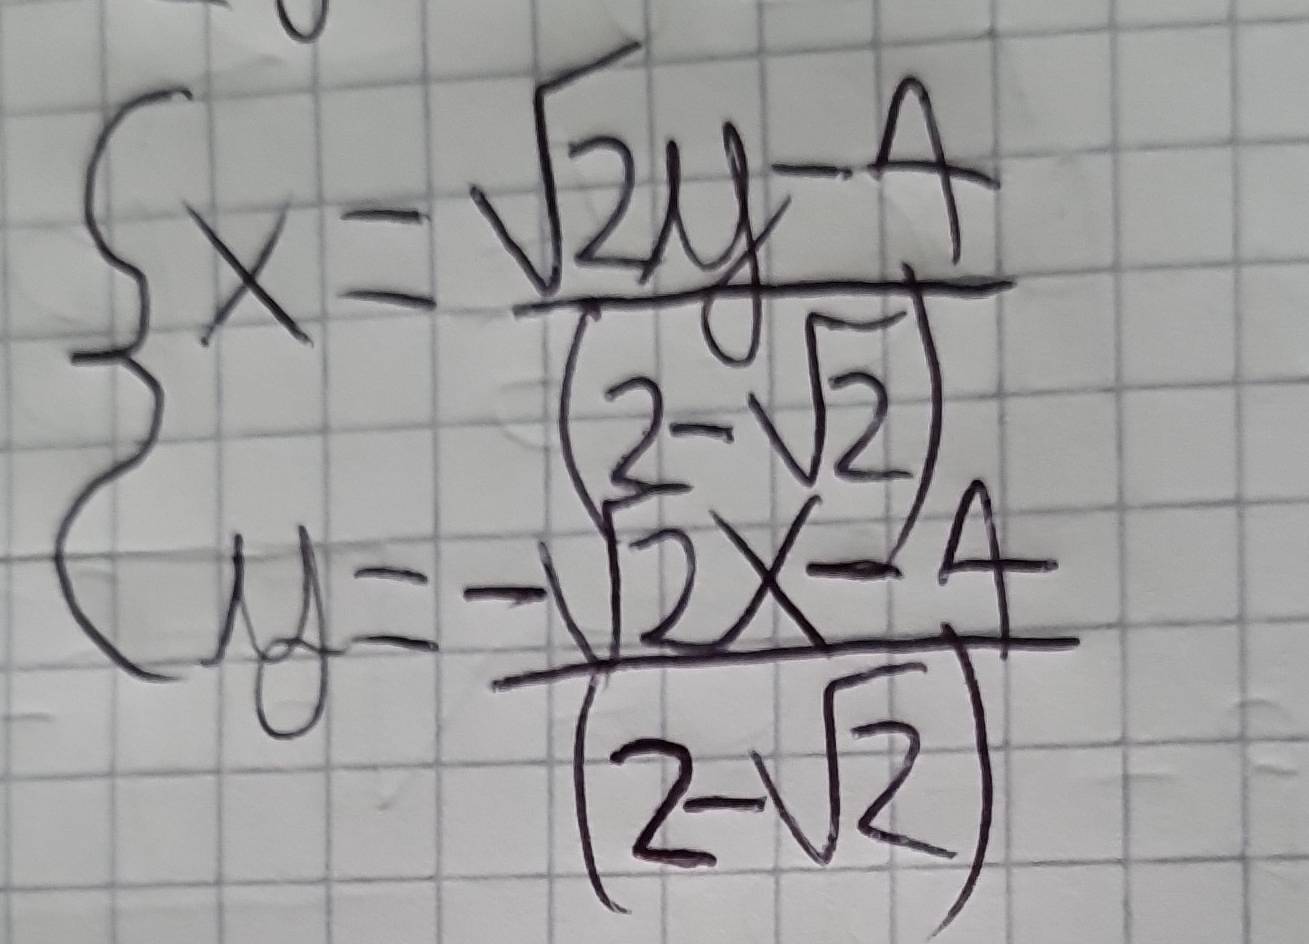 { x = √2y - 4 / (2 - √2)
y = -√2x - 4 / (2 - √2)